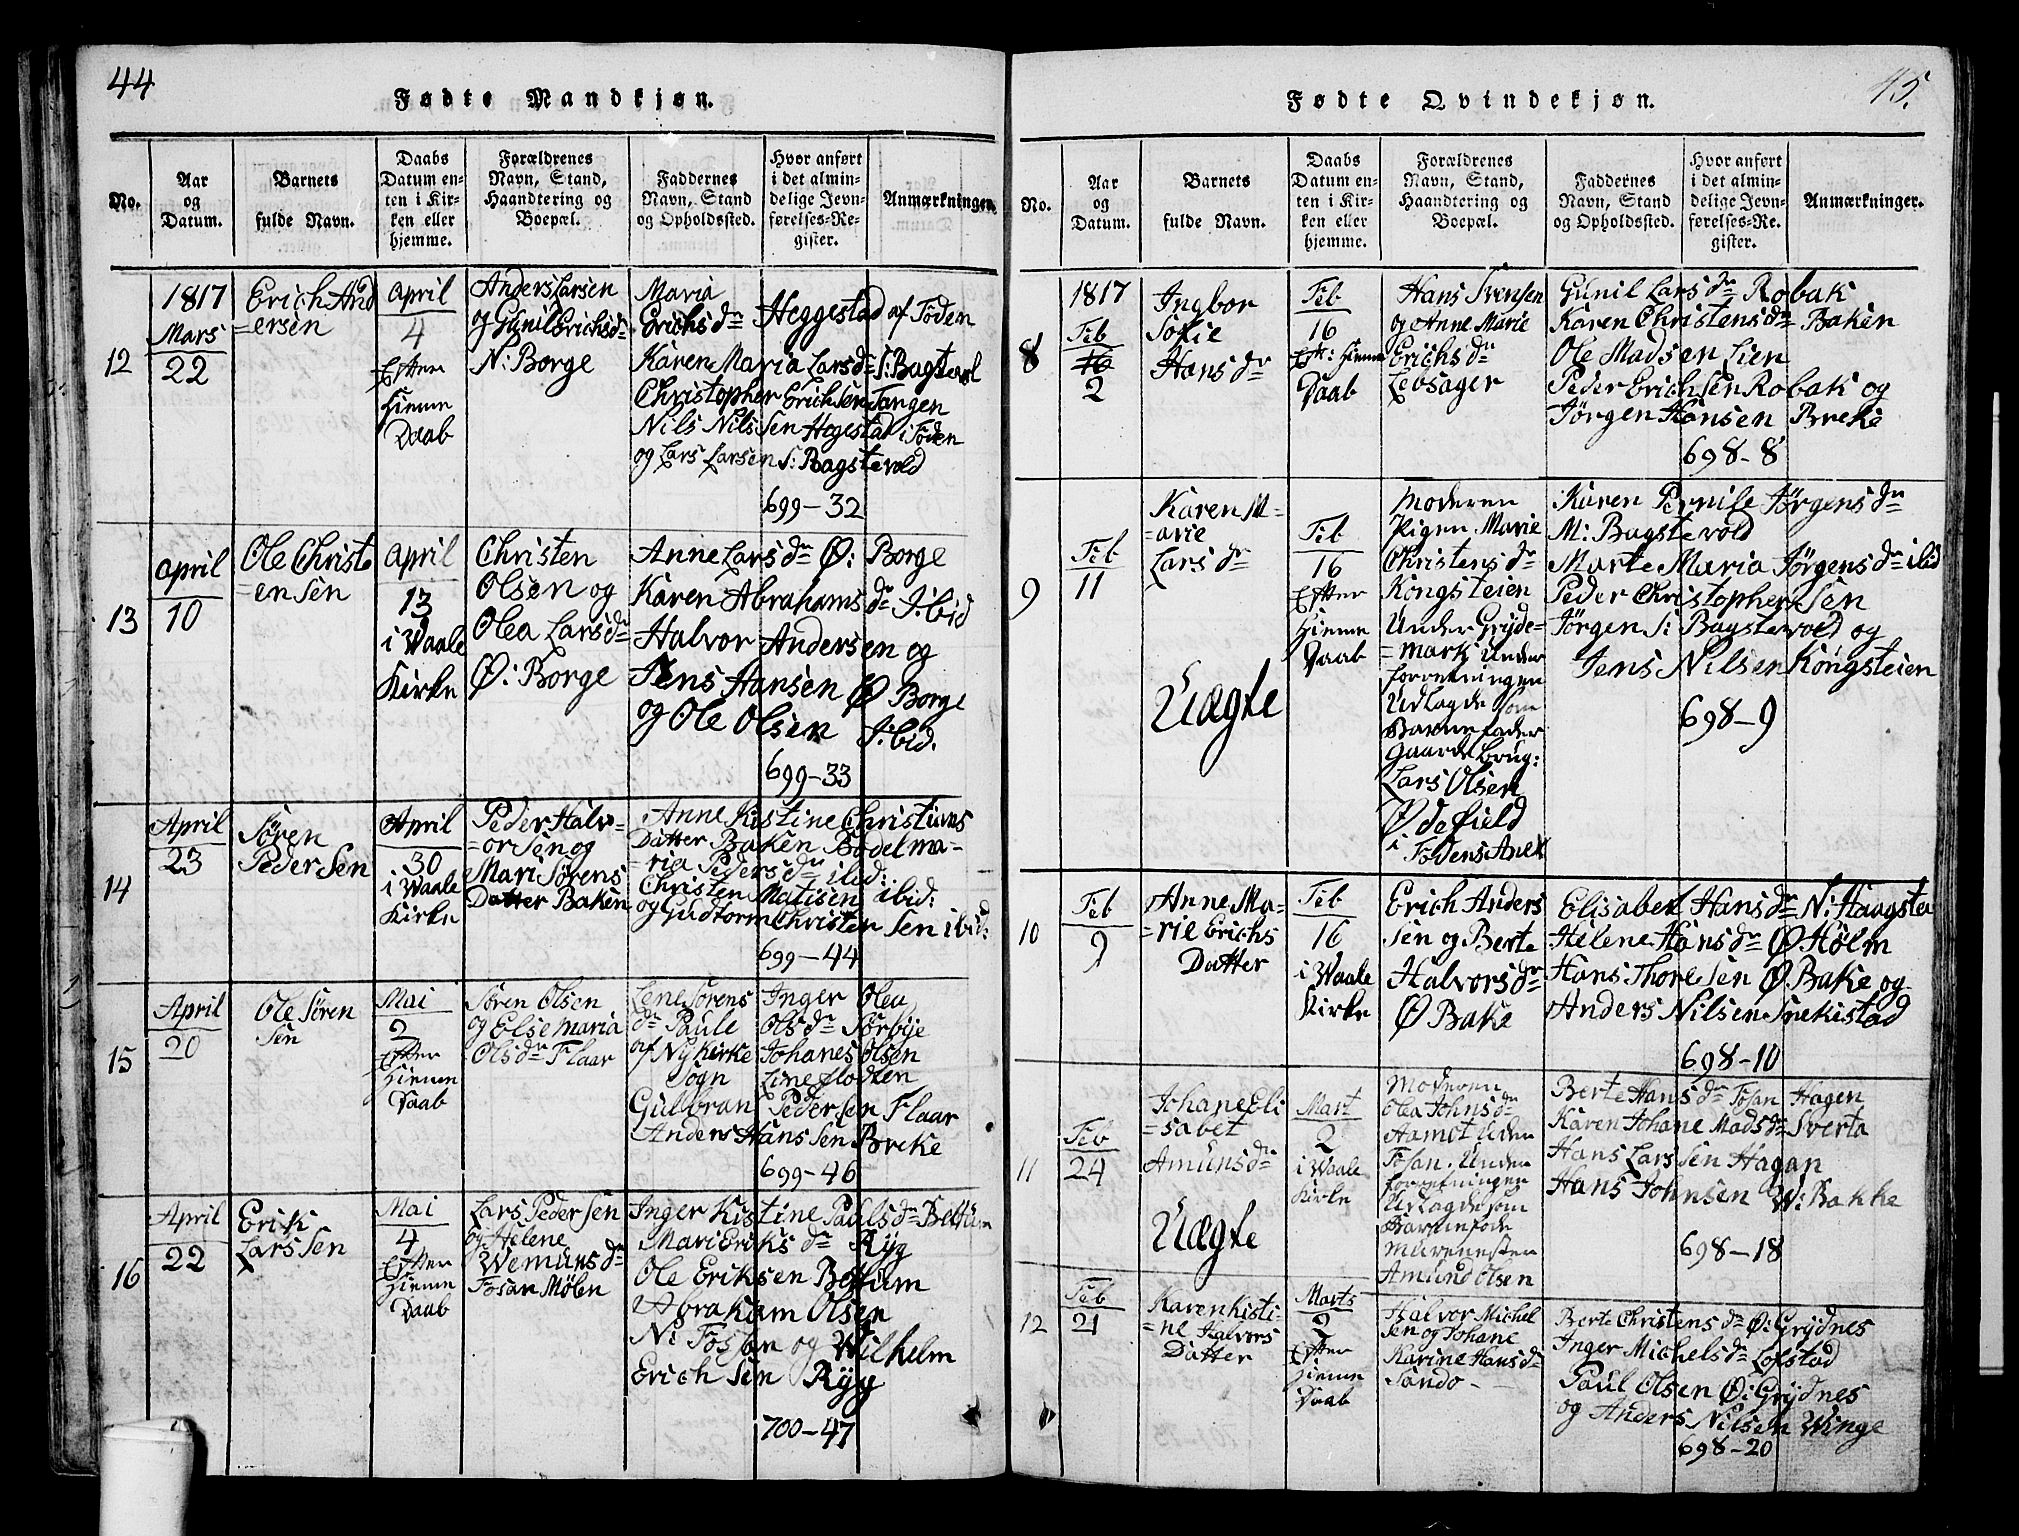 44
Fødte Mandkjøn.
No.
Aar og Datum.
Barnets fulde Navn.
Daabs Datum enten i Kirken eller hjemme.
Forældrenes Navn, Stand, Haandtering og Boepæl.
Faddernes Navn, Stand og Opholdssted.
Hvor anført i det almindelige Jevnførelses-Register.
Anmærkninger.
12
1817
Mars
22
Erich And
=ersen
April
4
Efter
Hiemme
Daab
Anders Larsen
og Gunil Erichsdr
N: Borge
Maria
Erichsdr Heggestad af Foden
Karen Maria Larsdr S: Bagstevol
Christopher Erichsen Tangen
Nils Nilssen Hegestad i Foden
og Lars Larsen S: Bagstevold
699-32
13
April
10
Ole Christ
=ensen
April
13
i Waale
Kirke
Christen
Olsen og
Olea Larsdr
Ø: Borge
Anne Larsdr Ø: Borge
Karen Abrahamsdr Ibid
Halvor Andersen og
Jens Hansen Ø Borge
og Ole Olsen Ibid.
699-33
14
April
23
Søren
Pedersen
April
30
i Waale
Kirke
Peder Halv-
=orsen og
Mari Sørens
Datter Baken
Anne Kistine Christians
Datter Baken Bodel ma-
=ria Pedersdr ibid:
Christen Matisen ibid:
og Gudtorm Christensen ibid:
699-44
15
April
20
Ole Søren
sen
Mai
2
Efter
Hiemme
Daab
Søren Olsen
og Else maria
Olsdr Flaar
Lene Sørens Inger Olea
dr Paule Olsdr Sørbye
af Nykirke Johanes Olsen
Sogn
Gulbran Pedersen Flaar
Anders Hanssen Breke
699-46
16
April
22
Erik
Larssen
Mai
4
Efter
Hiemme
Daab
Lars Pedersen
og Helene
Wemunsdr
Fosan Mølen
Inger Kistine Paulsdr Bettum
Mari Eriksdr Ryg
Ole Eriksen Bettum
Abraham Olsen
N: Fossan og Wilhelm
Erichsen Ryg
700-47
45.
Fødte Qvindekjøn.
No.
Aar og Datum.
Barnets fulde Navn.
Daabs Datum enten i Kirken eller hjemme.
Forældrenes Navn, Stand, Haandtering og Boepæl.
Faddernes Navn, Stand og Opholdssted.
Hvor anført i det almindelige Jevnførelses-Register.
Anmærkninger.
8
1817
Feb
16
2
Ingbor
Sofie
Hansdr
Feb
16
Eft: Hiemme
Daab
Hans Svensen
og Anne Marie
Erichsdr
Lebsager
Gunil Larsdr Robak
Karen Christensdr Baken
Ole Madsen Lien
Peder Erichsen Robak og
Jørgen Hansen Breke
698-8
9
Feb
11
Karen M-
=arie
Larsdr
Uægte
Feb
16
Efter
Hiemme
Daab
Moderen
Pigen Marie
Christensdr
Kongsteien
Under Gryde=
=mark under
forretningen
Udlagde som
Barnefader
Gaardebrug:
Lars Olsen
Ødefield
i Fodens Anex
Karen Pernile Jørgensdr
M: Bagstevold
Marte Maria Jørgensdr ibid
Peder Christophersen
Jørgen S: Bagstevold og
Jens Nilsen Kongsteien
698-9
10
Feb
9
Anne Ma-
=rie Erichs
Datter
Feb
16
i Waale
Kirke
Erich Anders
sen og Berte
Halvorsdr
Ø Bake
Elisabet Hansdr N: Haagsta
Helene Hansdr Ø Holm
Hans Thoresen Ø Bake og
Anders Nilsen Snekistad
698-10
11
Feb
24
Johane Eli
=sabet
Amunsdr
Uægte
Mart
2
i Waale
Kirke
Moderen
Olea Johnsdr
Aamot Uden
Fosan. Under
forretningen
Udlagde som
Barnefade
Murenester
Amund Olsen
Berte Hansdr Fosan Hagen
Karen Johane Madsdr Sverta
Hans Larssen Hagan
Hans Johnsen W: Bakke
698-18
12
Feb
21
Karen Kisti-
=ne Halvors
Datter
Marts
2
Efter
Hiemme
Daab
Halvor Michel
sen og Johane
Karine Hansdr
Sando -
Berte Christensdr Ø: Grydnes
Inger Michelsdr Lofstad
Paul Olsen Ø: Grydnes
og Anders Nilsen Winge
698-20